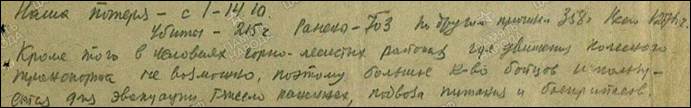 Наши потери – с 1-14.10.
Убито – 215ч Ранено – 703 По другим причинам 358ч Всего 1276 ч.
Кроме того в условиях горно-лесистых районов где движение колесного
транспорта не возможно, поэтому большое к-во бойцов использу-
ется для эвакуации тяжело раненных, подвоза питания и боеприпасов.